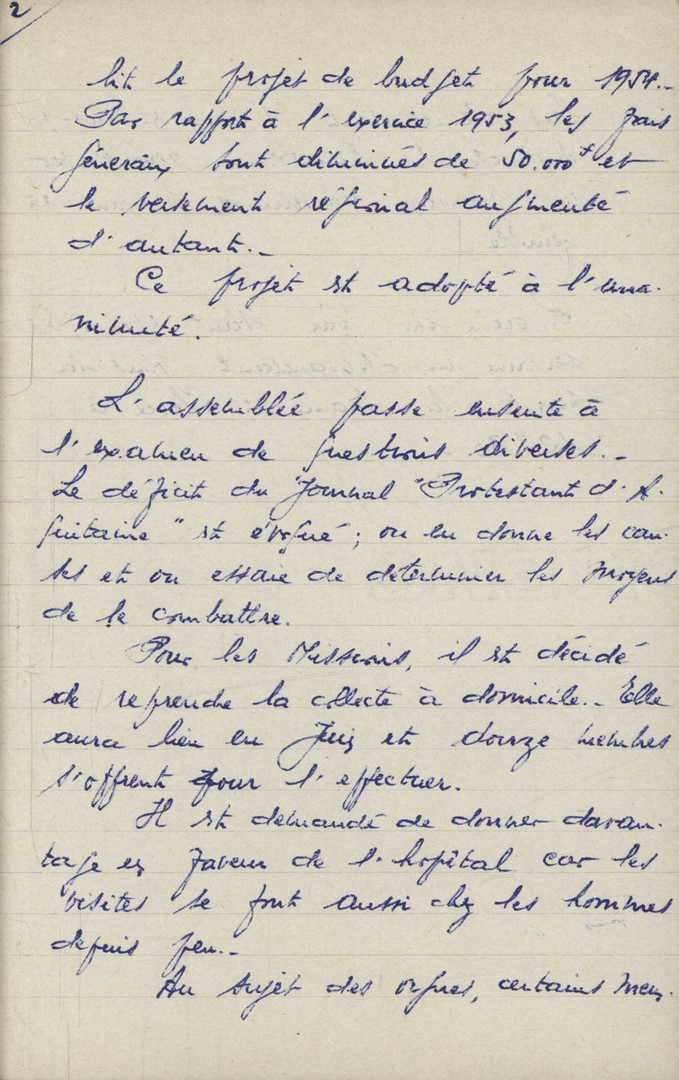 2
lit le projet de budget pour 1954.-
Par rapport à l'exercice 1953, les frais
généraux sont diminués de 50.000f et
le versement régional augmenté
d'autant.-
Ce projet est adopté à l'una-
nimité.
L'assemblée passe ensuite à
l'examen de questions diverses.-
Le déficit du Journal "Protestant d'A-
quitaine" est évoqué ; on en donne les cau-
ses et on essaie de déterminer les moyens
de le combattre.
Pour les Missions, il est décidé
de reprendre la collecte à domicile.- Elle
aura lieu en Juin et douze membres
s'offrent pour l'effectuer.
Il est demandé de donner davan-
tage en faveur de l'hopital car les
visites se font aussi chez les hommes
depuis peu.-
Au sujet des orgues, certains mem-